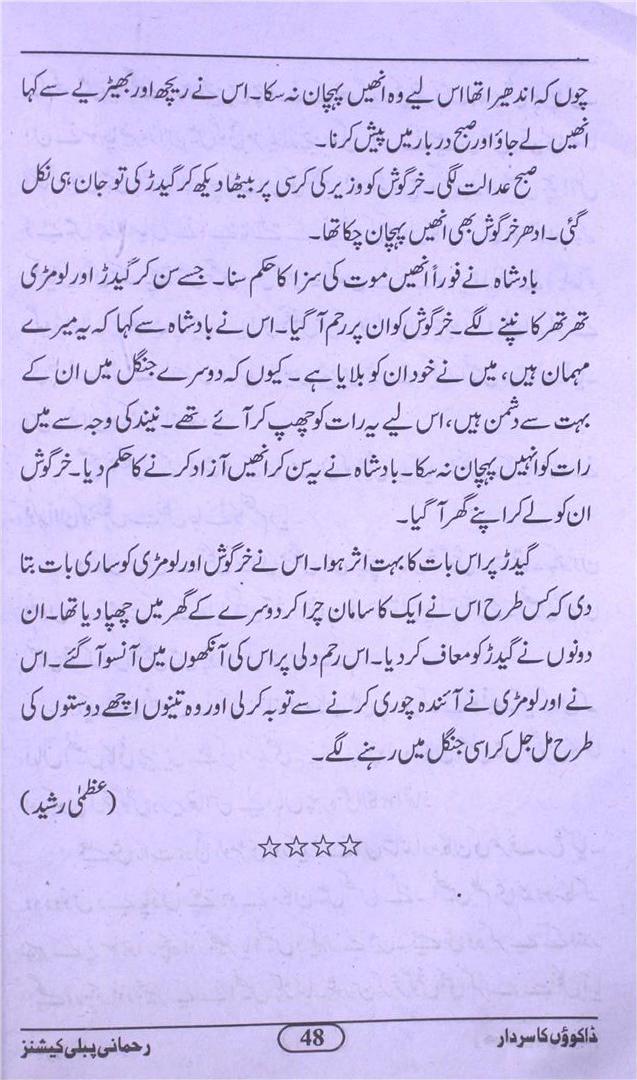 چوں کہ اندھیرا تھا اس لیے وہ انھیں پہچان نہ سکا۔ اس نے ریچھ اور بھیڑیے سے کہا
انھیں لے جاؤ اور صبح دربار میں پیش کرنا۔
صبح عدالت لگی۔ خرگوش کو وزیر کی کرسی پر بیٹھا دیکھ کر گیدڑ کی تو جان ہی نکل
گئی۔ ادھر خرگوش بھی انھیں پہچان چکا تھا۔
بادشاہ نے فوراً انھیں موت کی سزا کا حکم سنا۔ جسے سن کر گیدڑ اور لومڑی
تھر تھر کانپنے لگے۔ خرگوش کو ان پر رحم آ گیا۔ اس نے بادشاہ سے کہا کہ یہ میرے
مہمان ہیں، میں نے خود ان کو بلایا ہے۔ کیوں کہ دوسرے جنگل میں ان کے
بہت سے دشمن ہیں، اس لیے یہ رات کو چھپ کر آئے تھے۔ نیند کی وجہ سے میں
رات کو انہیں پہچان نہ سکا۔ بادشاہ نے یہ سن کر انھیں آزاد کرنے کا حکم دیا۔ خرگوش
ان کو لے کر اپنے گھر آ گیا۔
گیدڑ پر اس بات کا بہت اثر ہوا۔ اس نے خرگوش اور لومڑی کو ساری بات بتا
دی کہ کس طرح اس نے ایک کا سامان چرا کر دوسرے کے گھر میں چھپا دیا تھا۔ ان
دونوں نے گیدڑ کو معاف کر دیا۔ اس رحم دلی پر اس کی آنکھوں میں آنسو آ گئے۔ اس
نے اور لومڑی نے آئندہ چوری کرنے سے توبہ کر لی اور وہ تینوں اچھے دوستوں کی
طرح مل جل کر اسی جنگل میں رہنے لگے۔
(عظمیٰ رشید)
☆☆☆☆
ڈاکوؤں کا سردار 48 رحمانی پبلی کیشنز